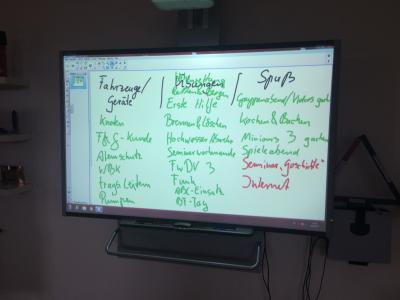 Fahrzeuge/
Geräte
Knoten
FzG-Kunde
Atemschutz
WBK
tragb. Leitern
Pumpen
Übungen
Erste Hilfe
Brennen & Löschen
Hochwasser
FwDV 3
Funk
ABC-Einsatz
BF-Tag
Spaß
Gruppenabend/
Kochen & Backen
Minions 3 gucken
Spieleabend
Seminar „Geschichte"
Internet